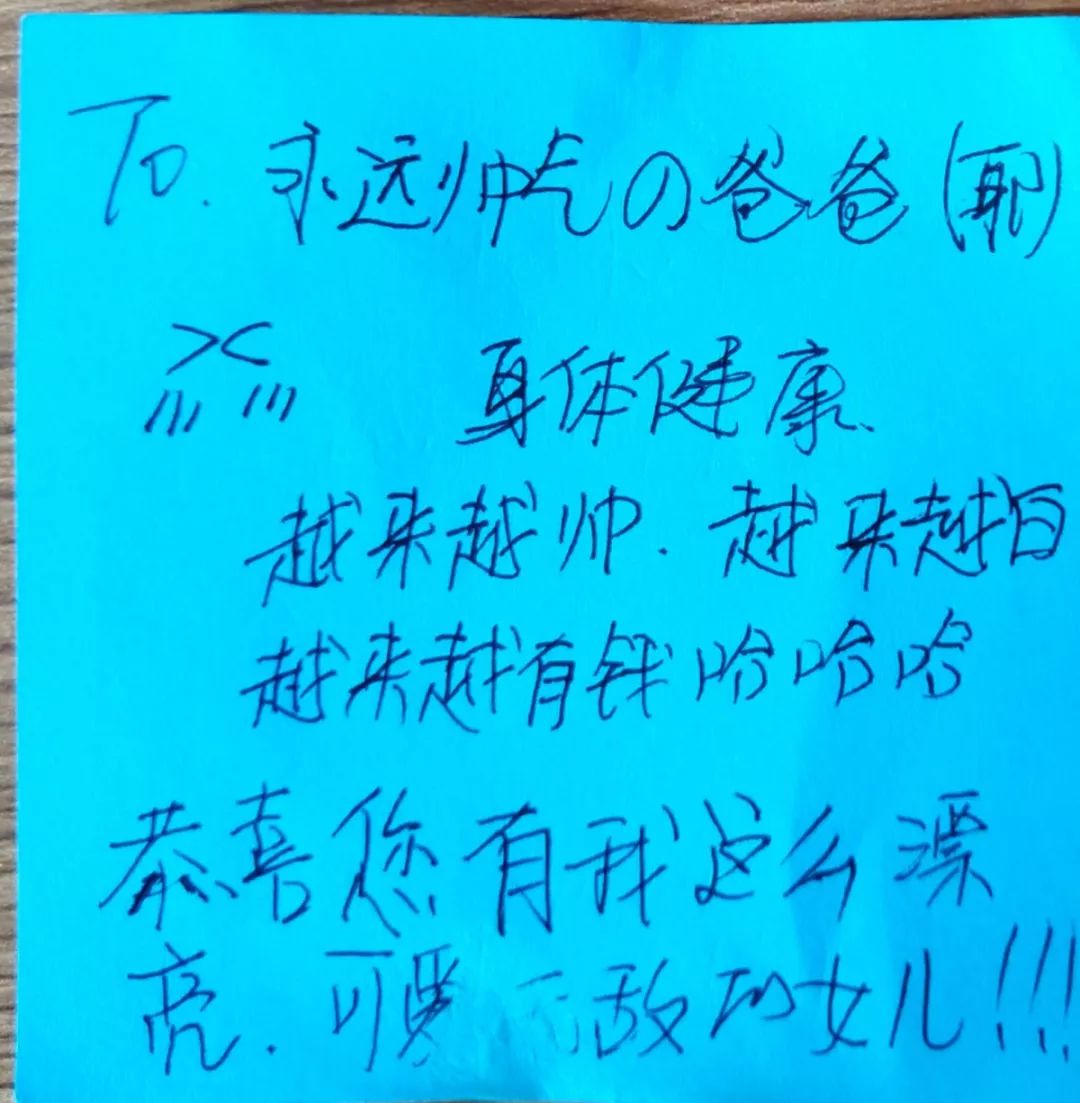 To. 永远帅气の爸爸(耶)
>< 身体健康、
越来越帅. 越来越白
越来越有钱哈哈哈
恭喜您有我这么漂
亮. 可爱无敌的女儿!!!